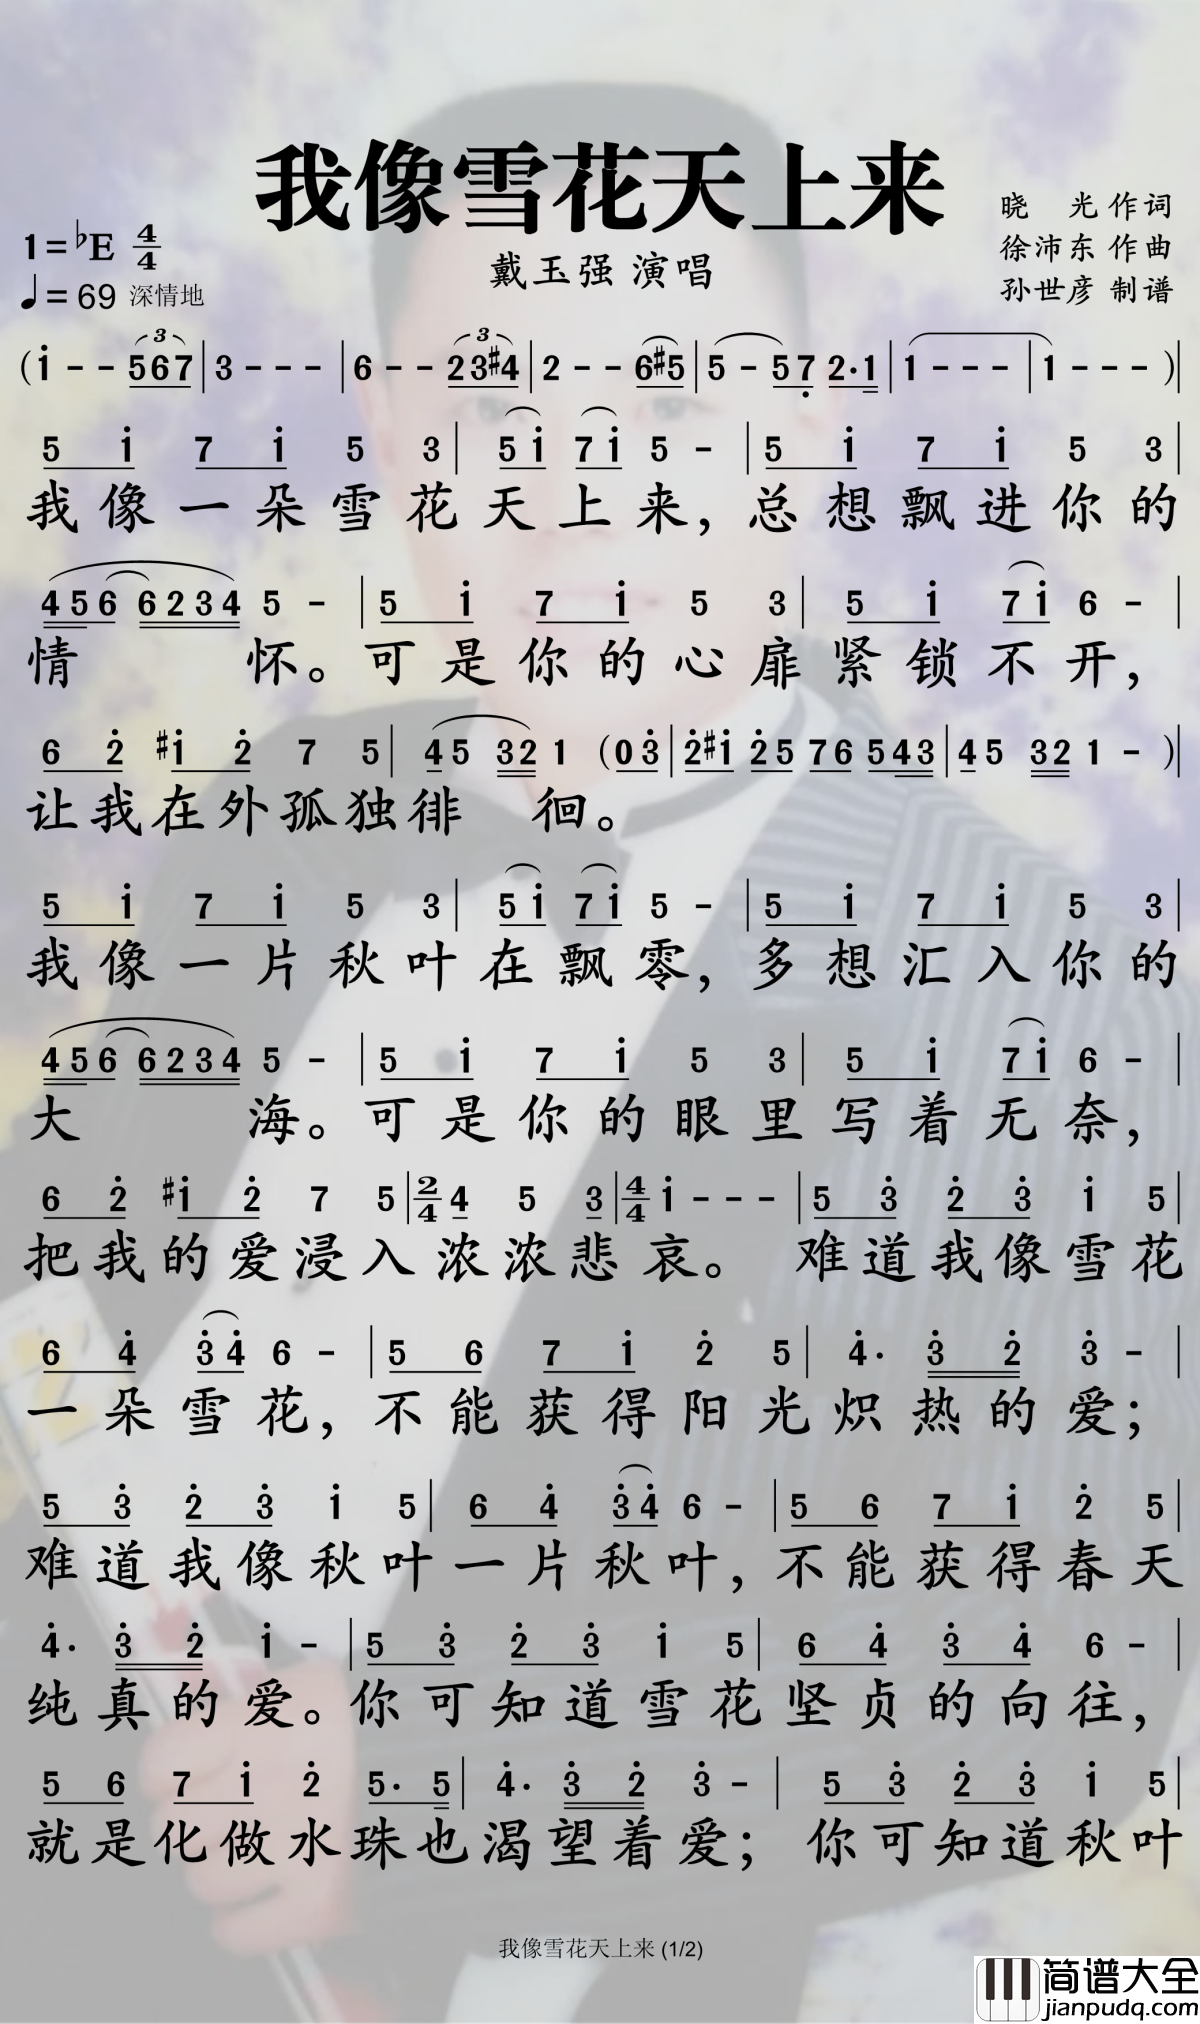 我像雪花天上来
晓 光 作词
徐沛东 作曲
孙世彦 制谱
戴玉强 演唱
1=♭E 4/4
♩=69 深情地
(i - - 567 | 3 - - - | 6 - - 23#4 | 2 - - 6#5 | 5 - 57 2·1 | 1 - - - | 1 - - - )|
5 i 7 i 5 3 | 5i 7i 5 - | 5 i 7 i 5 3 |
我像一朵雪花天上来，总想飘进你的
456 6234 5 - | 5 i 7 i 5 3 | 5 i 7i 6 - |
情 怀。可是你的心扉紧锁不开，
6 2 #i 2 7 5 | 45 32 1 (03 | 2#i 25 76 543 | 45 32 1 - )|
让我在外孤独徘 徊。
5 i 7 i 5 3 | 5i 7i 5 - | 5 i 7 i 5 3 |
我像一片秋叶在飘零，多想汇入你的
456 6234 5 - | 5 i 7 i 5 3 | 5 i 7i 6 - |
大 海。可是你的眼里写着无奈，
6 2 #i 2 7 5 | 2/4 4 5 3 | 4/4 i - - - | 5 3 2 3 i 5 |
把我的爱浸入浓浓悲哀。 难道我像雪花
6 4 34 6 - | 5 6 7 i 2 5 | 4· 3 2 3 - |
一朵雪花，不能获得阳光炽热的爱；
5 3 2 3 i 5 | 6 4 34 6 - | 5 6 7 i 2 5 |
难道我像秋叶一片秋叶，不能获得春天
4· 3 2 i - | 5 3 2 3 i 5 | 6 4 3 4 6 - |
纯真的爱。你可知道雪花坚贞的向往，
5 6 7 i 2 5· 5 | 4· 3 2 3 - | 5 3 2 3 i 5 |
就是化做水珠也渴望着爱；你可知道秋叶
我像雪花天上来 (1/2)
简谱大全
jianpudq.com